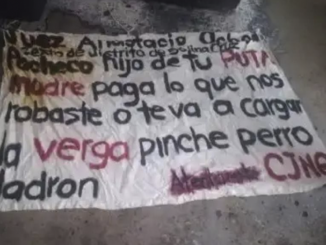 Juez
Pacheco hijo de tu PUTA
Madre paga lo que nos
robaste o te va a cargar
la verga pinche perro
ladron Atentamente CJNG